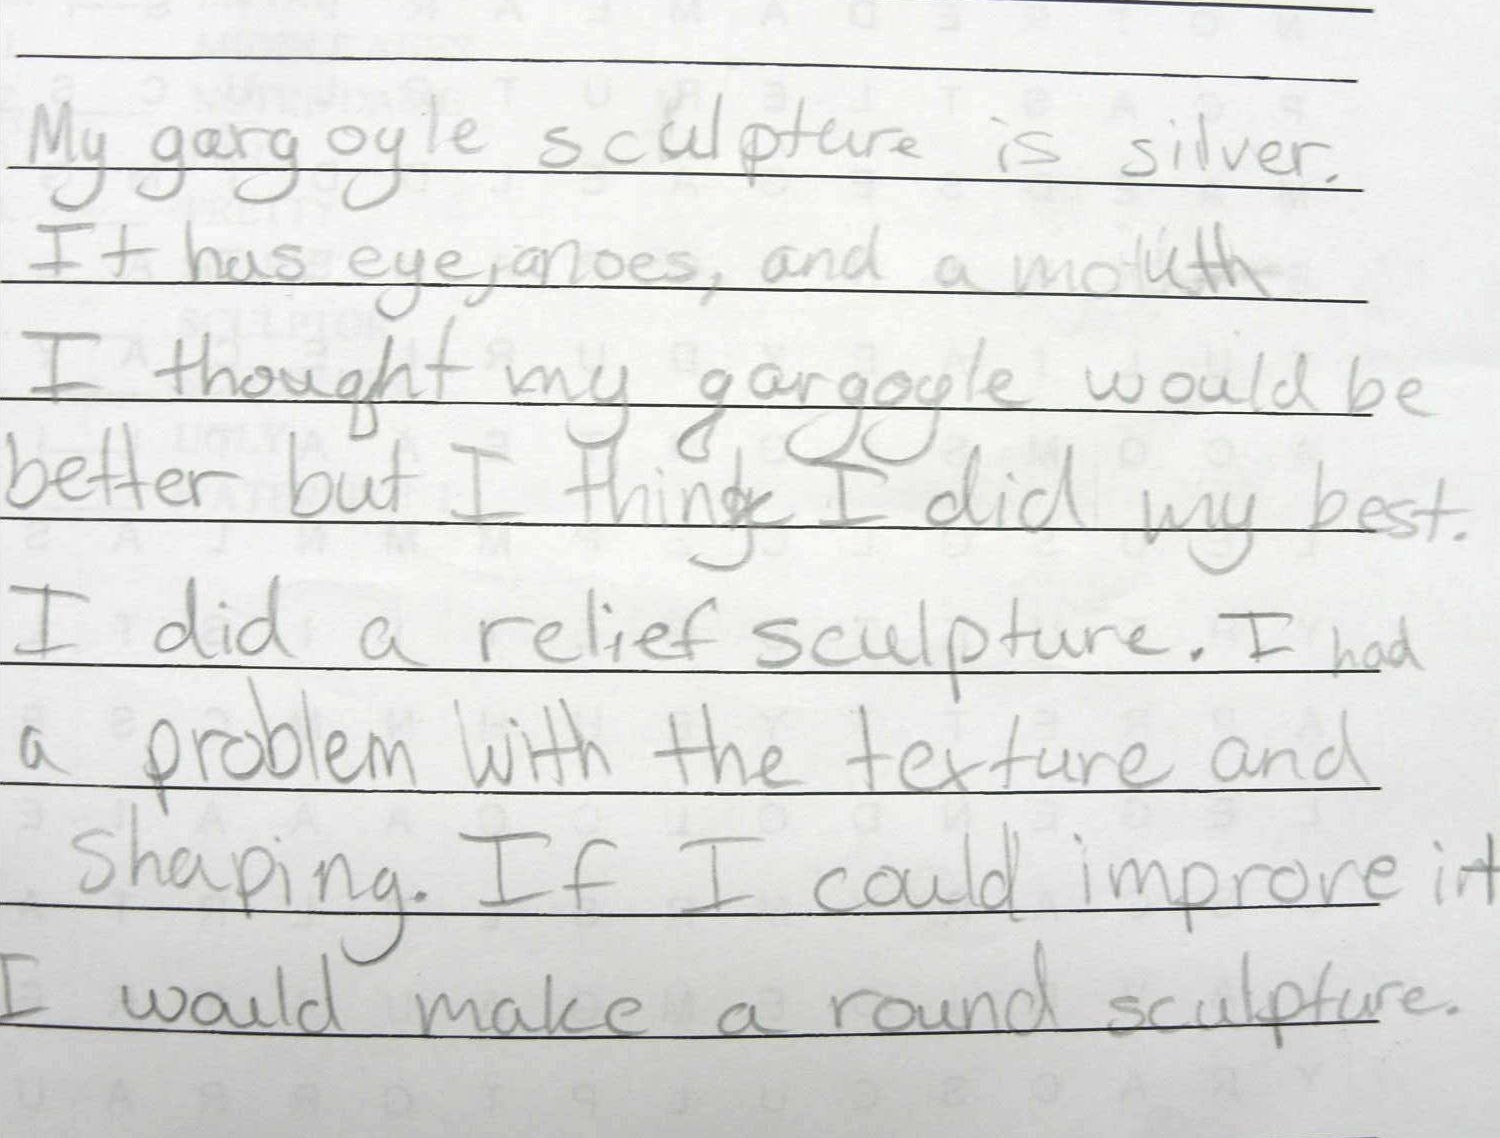 My gargoyle sculpture is silver.
It has eye, a noes, and a mouth
I thought my gargogle would be
better but I think I did my best.
I did a relief sculpture. I had
a problem with the texture and
shaping. If I could improve it
I would make a round sculpture.